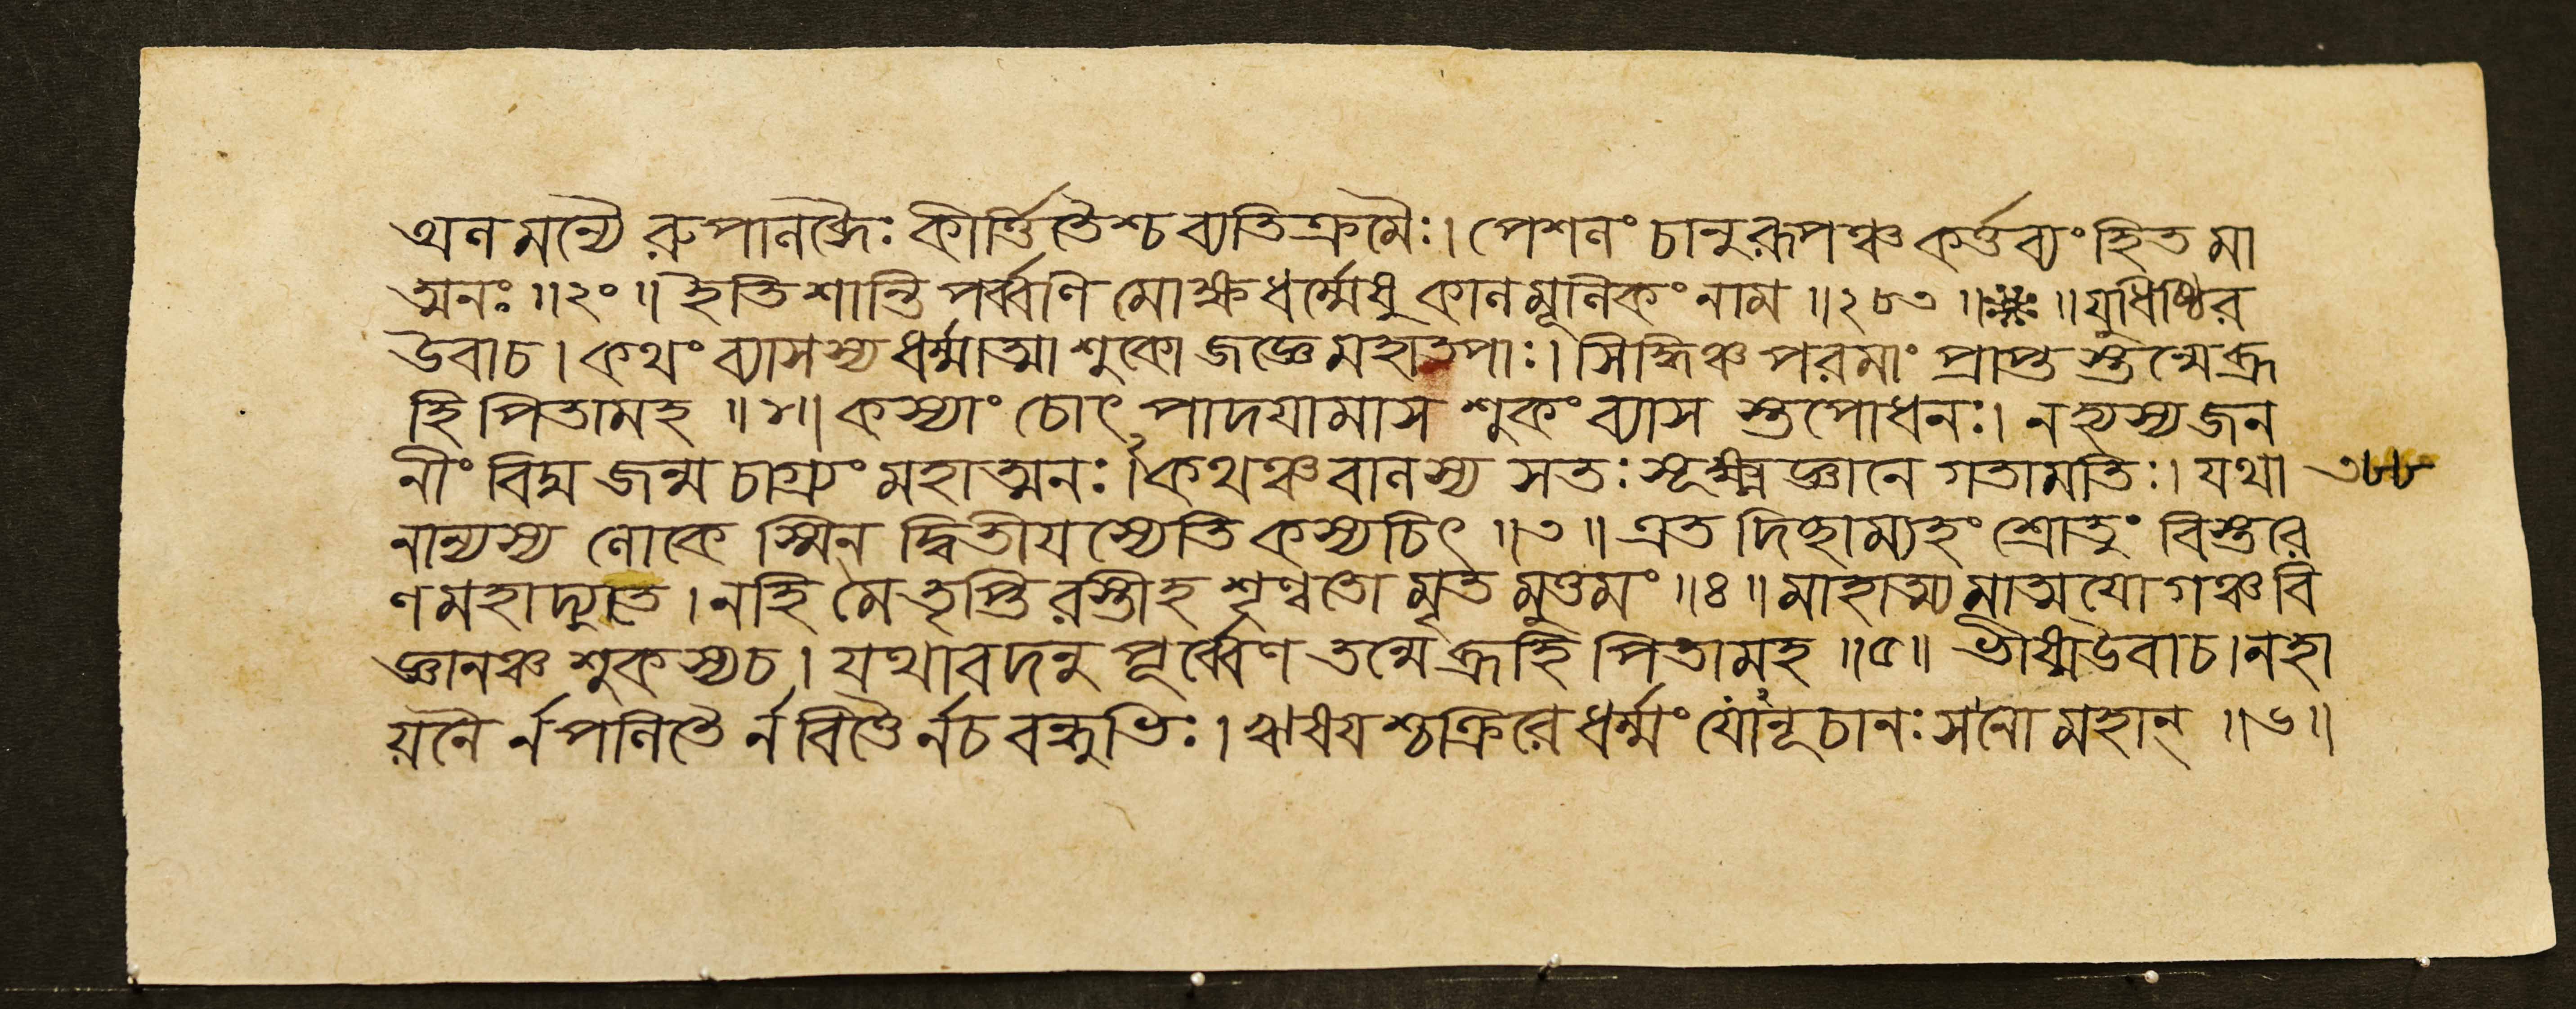 অলমন্যৈরুপালব্ধৈঃ কীর্ত্তিতৈশ্চ ব্যতিক্রমৈঃ। পেশলং চানুরূপঞ্চ কর্ত্তব্যং হিতমা
ত্মনঃ ॥২০॥ ইতি শান্তিপর্ব্বণি মোক্ষধর্ম্মেষু কালমূলিকং নাম ॥২৮৩॥ ॥যুধিষ্ঠির
উবাচ। কথং ব্যাসস্য ধর্ম্মাত্মা শুকো জজ্ঞে মহাতপাঃ। সিদ্ধিঞ্চ পরমাং প্রাপ্তস্তন্মে ব্রূ
হি পিতামহ ॥১॥ কস্যাং চোৎপাদয়ামাস শুকং ব্যাসস্তপোধনঃ। নহ্যস্য জন
নীং বিদ্ম জন্ম চাগ্র্যং মহাত্মনঃ।২ কথঞ্চ বালস্য সতঃ সূক্ষ্মজ্ঞানে গতা মতিঃ। যথা
নান্যস্য লোকেস্মিন দ্বিতীয়স্যেতি কস্যচিৎ ॥৩॥ এতদিচ্ছাম্যহং শ্রোতুং বিস্তরে
ণ মহাদ্যুতে। নহি মে তৃপ্তিরস্তীহ শৃণ্বতোমৃতমুত্তমং ॥৪॥ মাহাত্ম্যমাত্মযোগঞ্চ বি
জ্ঞানঞ্চ শুকস্য চ। যথাবদনুপূর্ব্বেণ তন্মে ব্রূহি পিতামহ ॥৫॥ ভীষ্মউবাচ। নহা
য়নৈর্ন পলিতৈর্ন বিত্তৈর্নচ বন্ধুভিঃ। ঋষয়শ্চক্রিরে ধর্ম্মং যোনূচানঃ স নো মহান্ ॥৬॥
৩৮৮